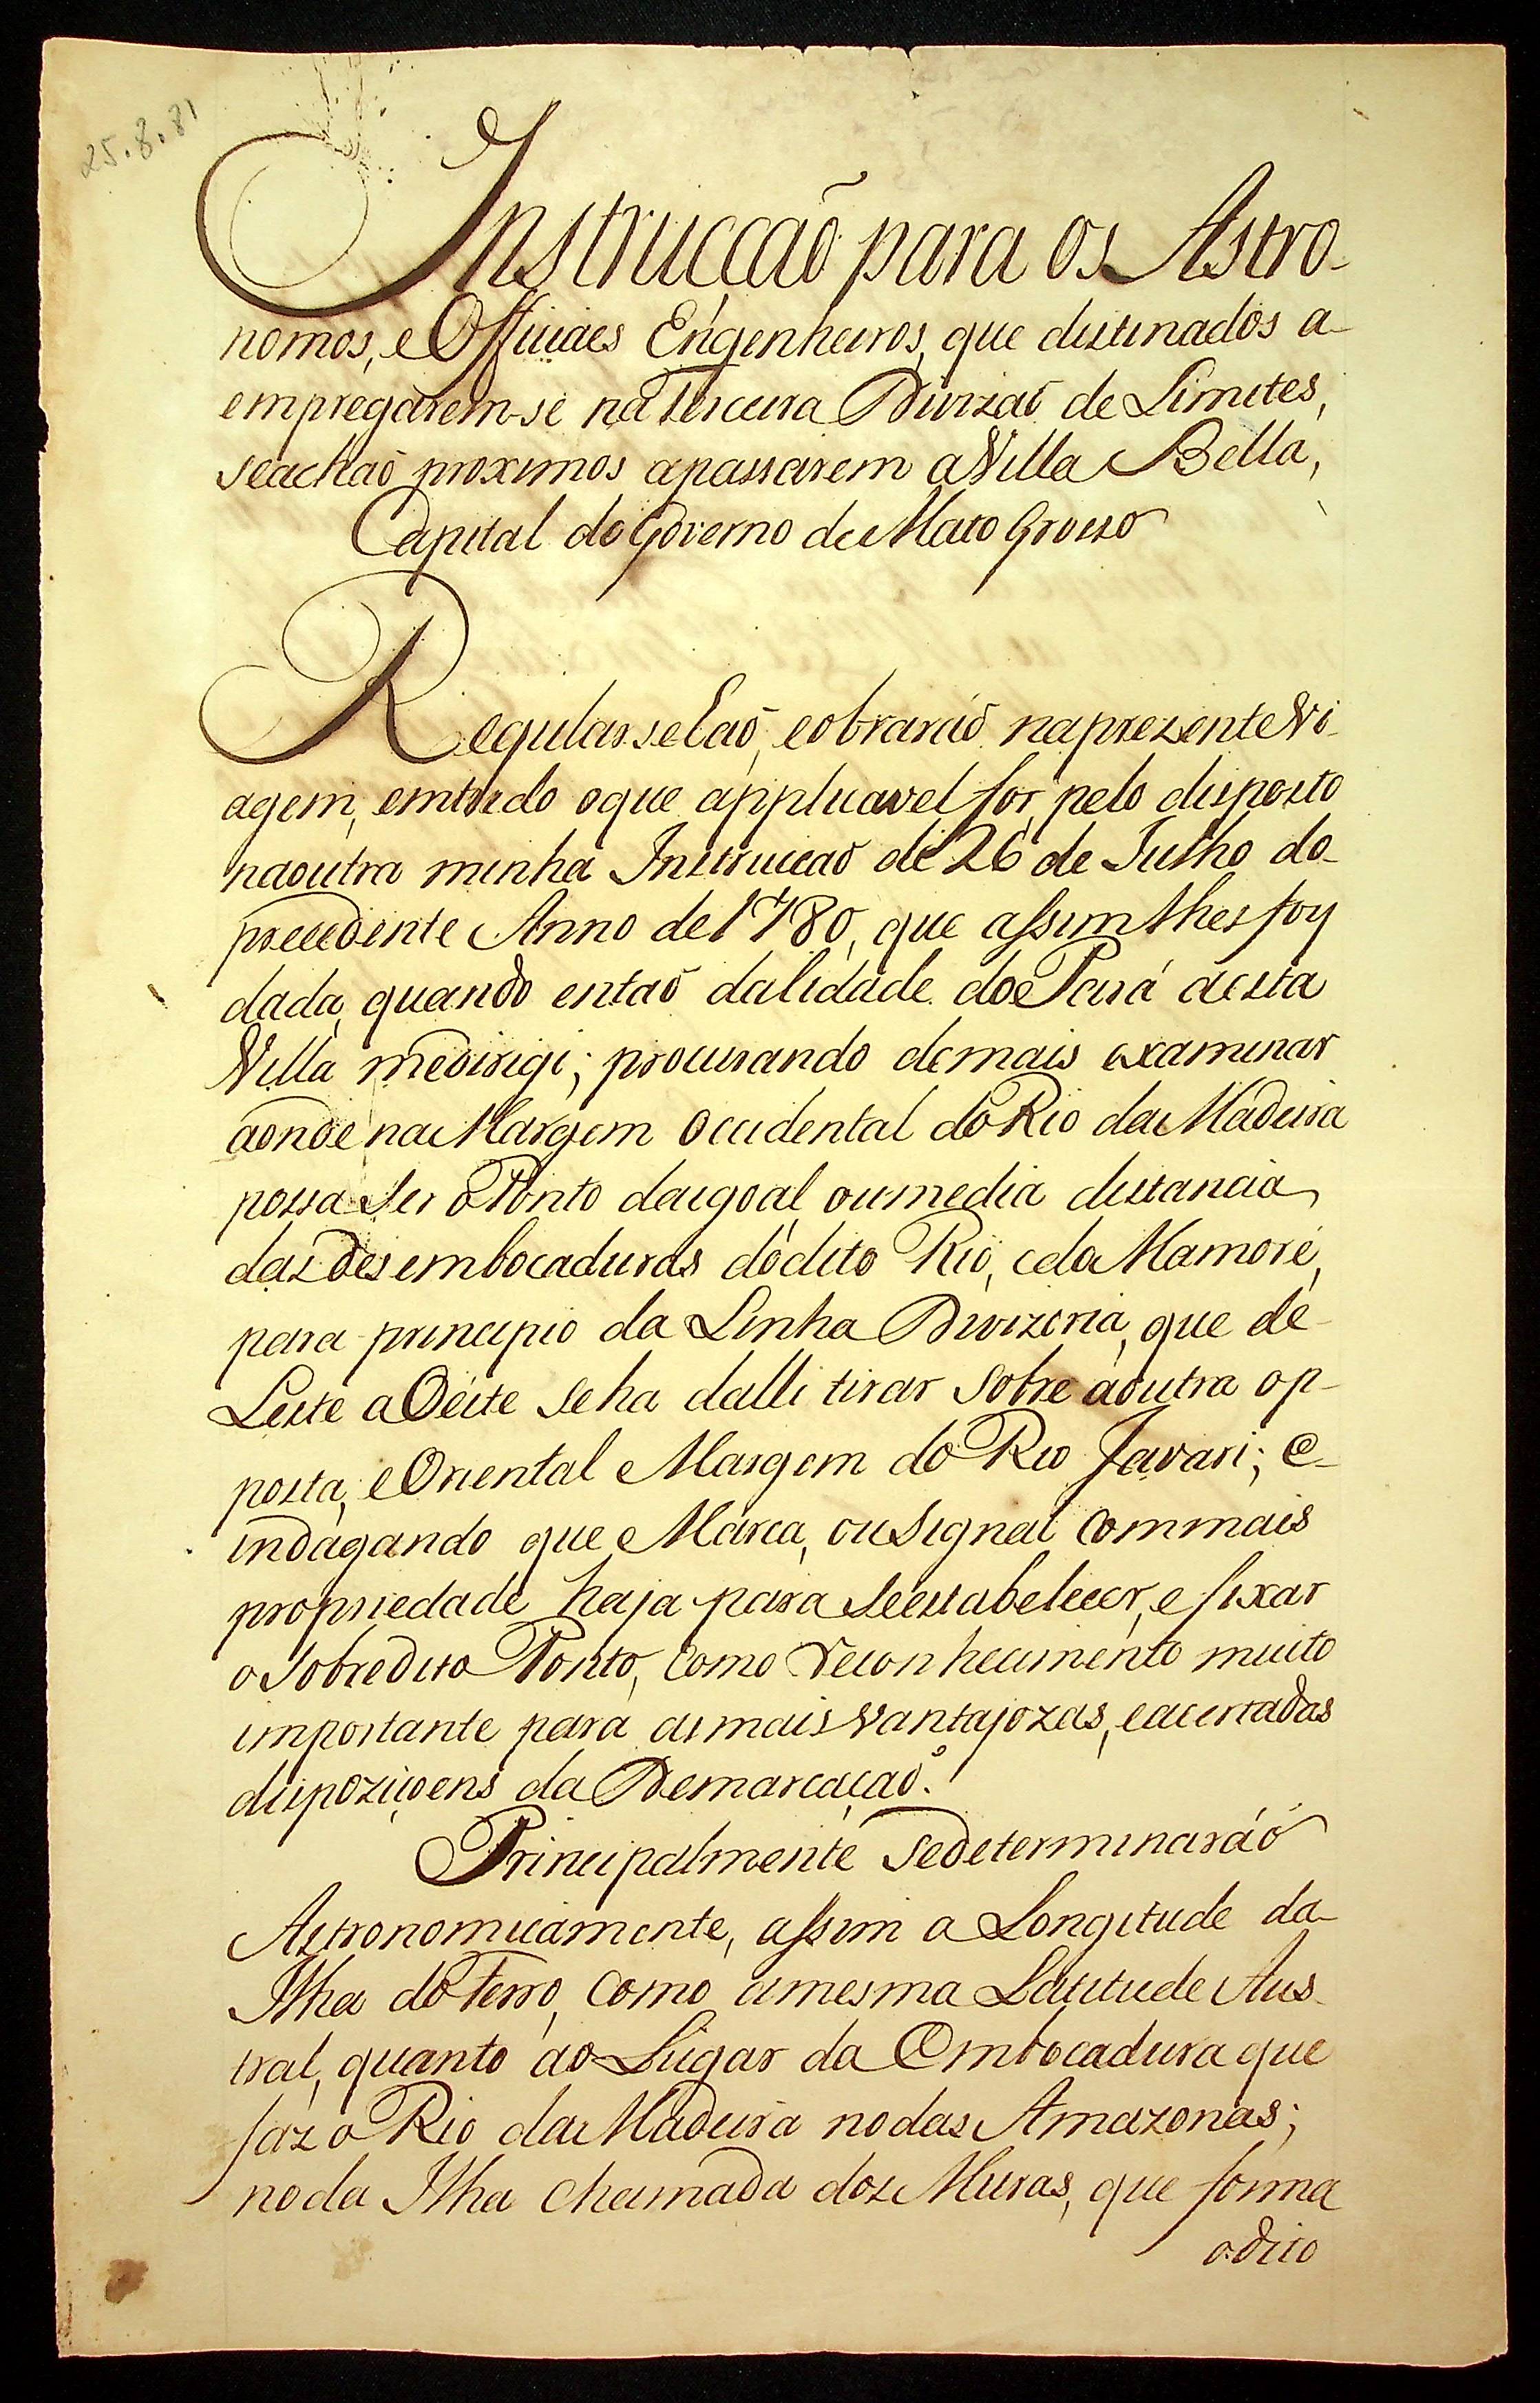 25.8.81
Instrucçaõ para os Astro-
nomos, e Officiaes Engenheiros, que destinados a-
empregarem-se na Terceira Divizaõ de Limites,
seachaõ proximos apassarem a Villa Bella,
Capital do Governo de Mato Grosso
Regularseháõ, eobraráõ naprezente Vi-
agem, emtudo oque applicavel for, pelo disposto
naoutra minha Instrucçaõ de 26 de Julho do-
precedente Anno de 1780, que assim lhes foy
dada, quando entaõ daCidade do Pará aesta
Villa medirigi; procurando demais examinar
aonde na Margem Occidental do Rio da Madeira
possa ser o Ponto daigoal, oumedia distancia
das desembocaduras dodito Rio, edo Mamoré,
para principio da Linha Divizoria, que de-
Leste a Oéste seha dalli tirar sobre aoutra op-
posta, e Oriental Margem do Rio Javari; e-
indagando que Marca, ou Signal commais
propriedade haja para seestabelecer, e fixar
o sobredito Ponto, como reconhecimento muito
importante para asmais vantajozas, eacertadas
dispoziçoens da Demarcaçaõ.
Principalmente sedeterminaráõ
Astronomicamente, assim a Longitude da-
Ilha do Ferro, como amesma Latitude Aus-
tral, quanto ao Lugar da Embocadura que
faz o Rio da Madeira nodas Amazonas;
noda Ilha chamada dos Muras, que forma
odito